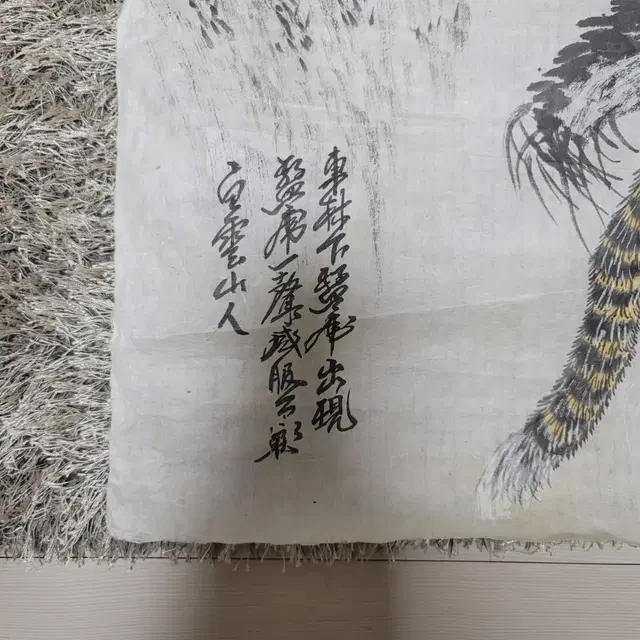 東林下猛虎出現
猛虎一聲威服百獸
白雲山人